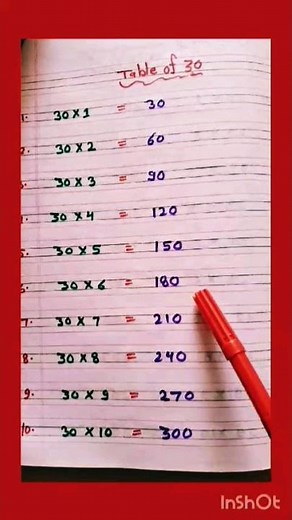 Table of 30
1. 30 × 1 = 30
2. 30 × 2 = 60
3. 30 × 3 = 90
4. 30 × 4 = 120
5. 30 × 5 = 150
6. 30 × 6 = 180
7. 30 × 7 = 210
8. 30 × 8 = 240
9. 30 × 9 = 270
10. 30 × 10 = 300
InShOt